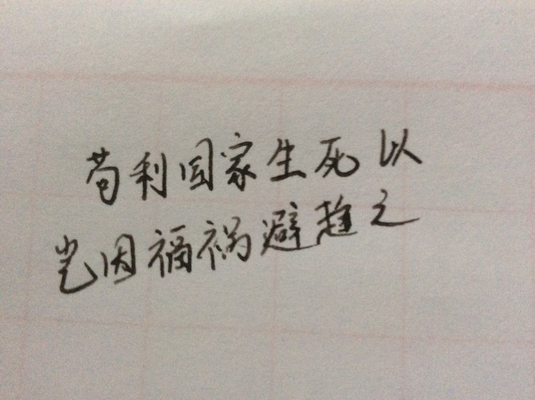 苟利国家生死以
岂因福祸避趋之